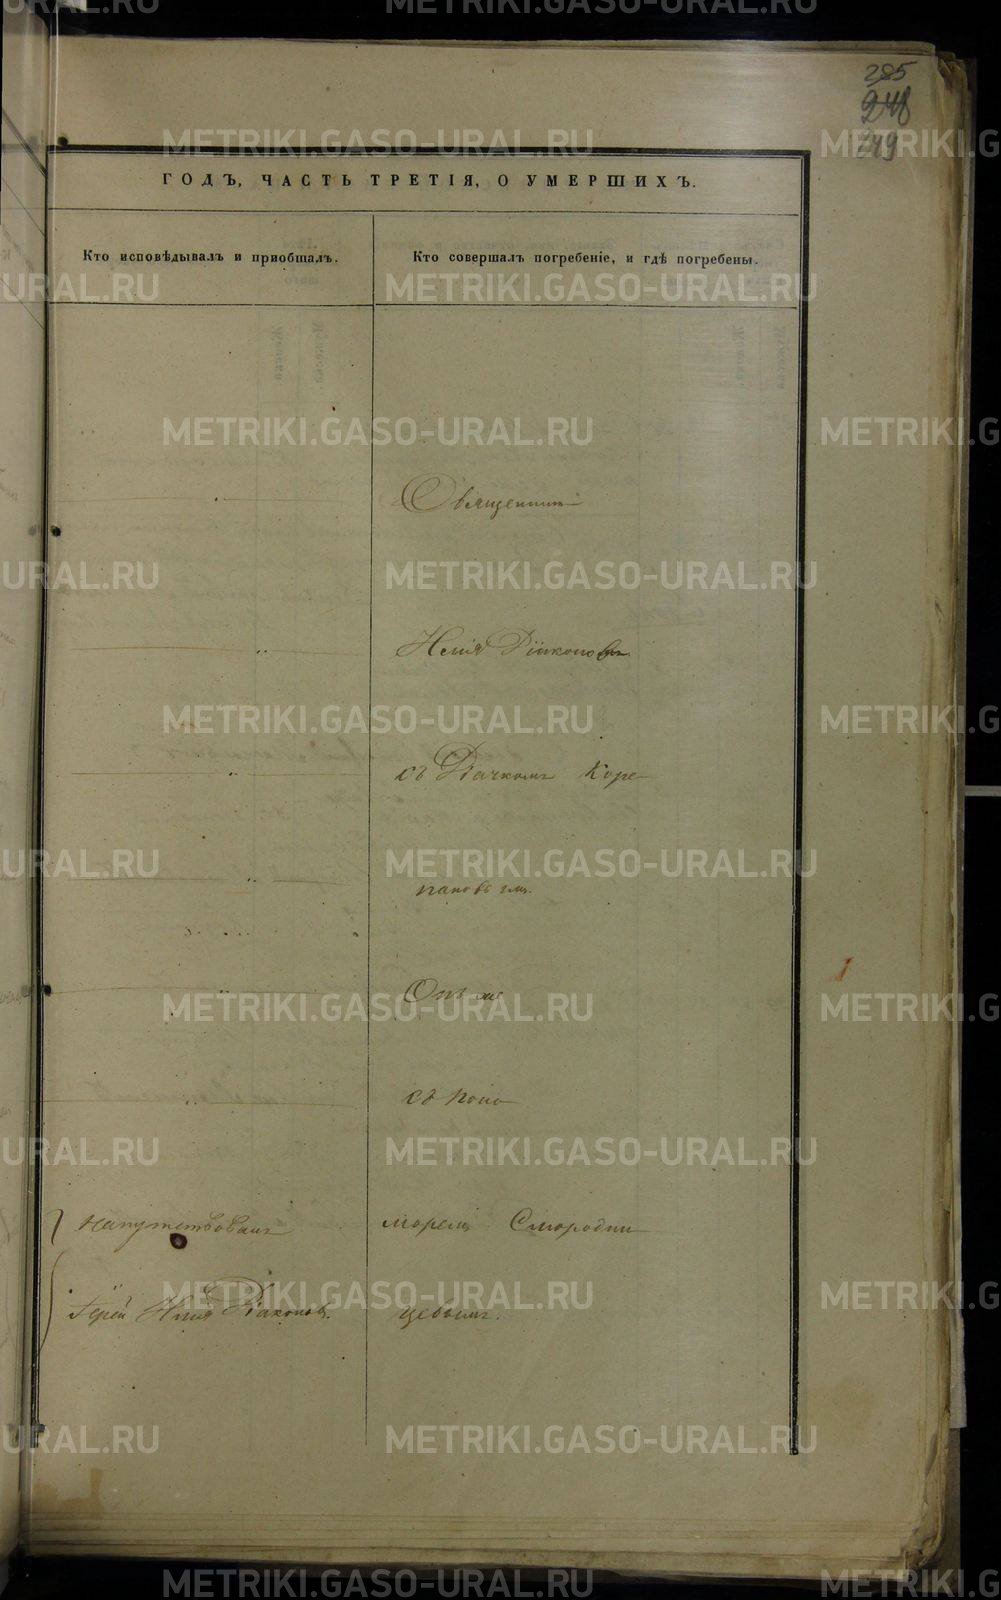 285
248
249
ГОДЪ, ЧАСТЬ ТРЕТІЯ, О УМЕРШИХЪ.
Кто исповѣдывалъ и приобщалъ.
Кто совершалъ погребеніе, и гдѣ погребены.
Священник
Илія Діаконовъ
съ Дьячкомъ Коре
пановымъ.
Онъ же
съ Поно
марем Смородин
цевымъ.
Напутствовалъ
Іерей Илія Діаконовъ.
METRIKI.GASO-URAL.RU